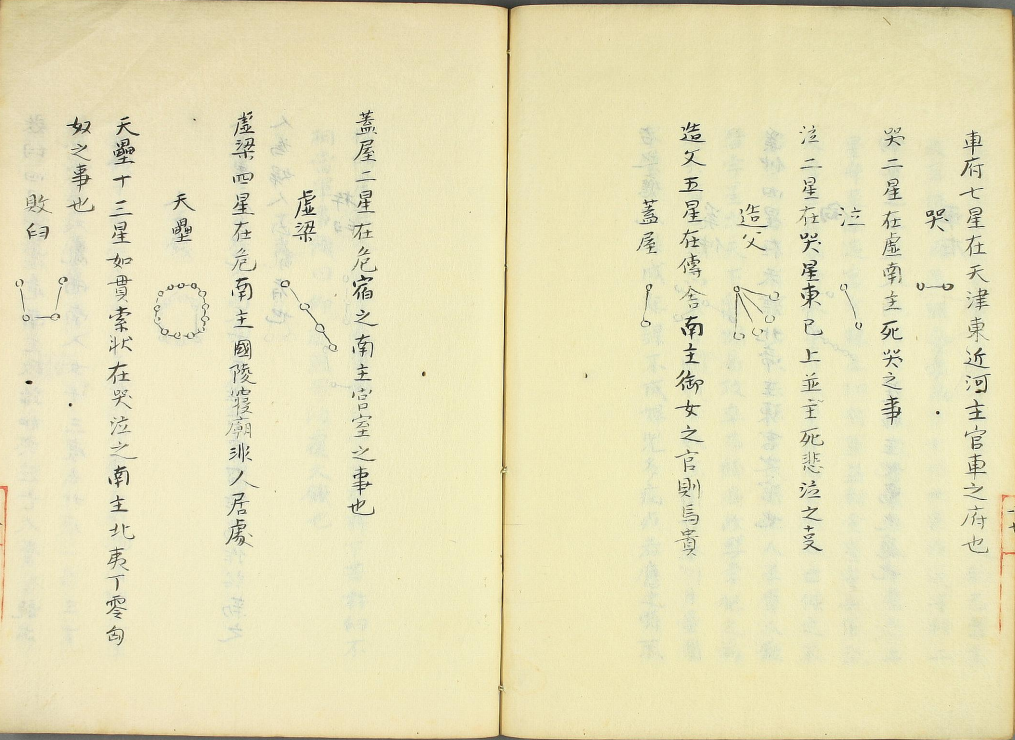 車府七星在天津東近河主官車之府也
哭
哭二星在虛南主死哭之事
泣
泣二星在哭星東已上並主死悲泣之
造父
造父五星在傳舎南主御女之官則馬貴
蓋屋
蓋屋二星在危宿之南主宮室之事也
虛梁
虛梁四星在危南主國陵寢廟非人居處
天壘
天壘十三星如貫索狀在哭泣之南主北夷丁零匈
奴之事也
敗臼